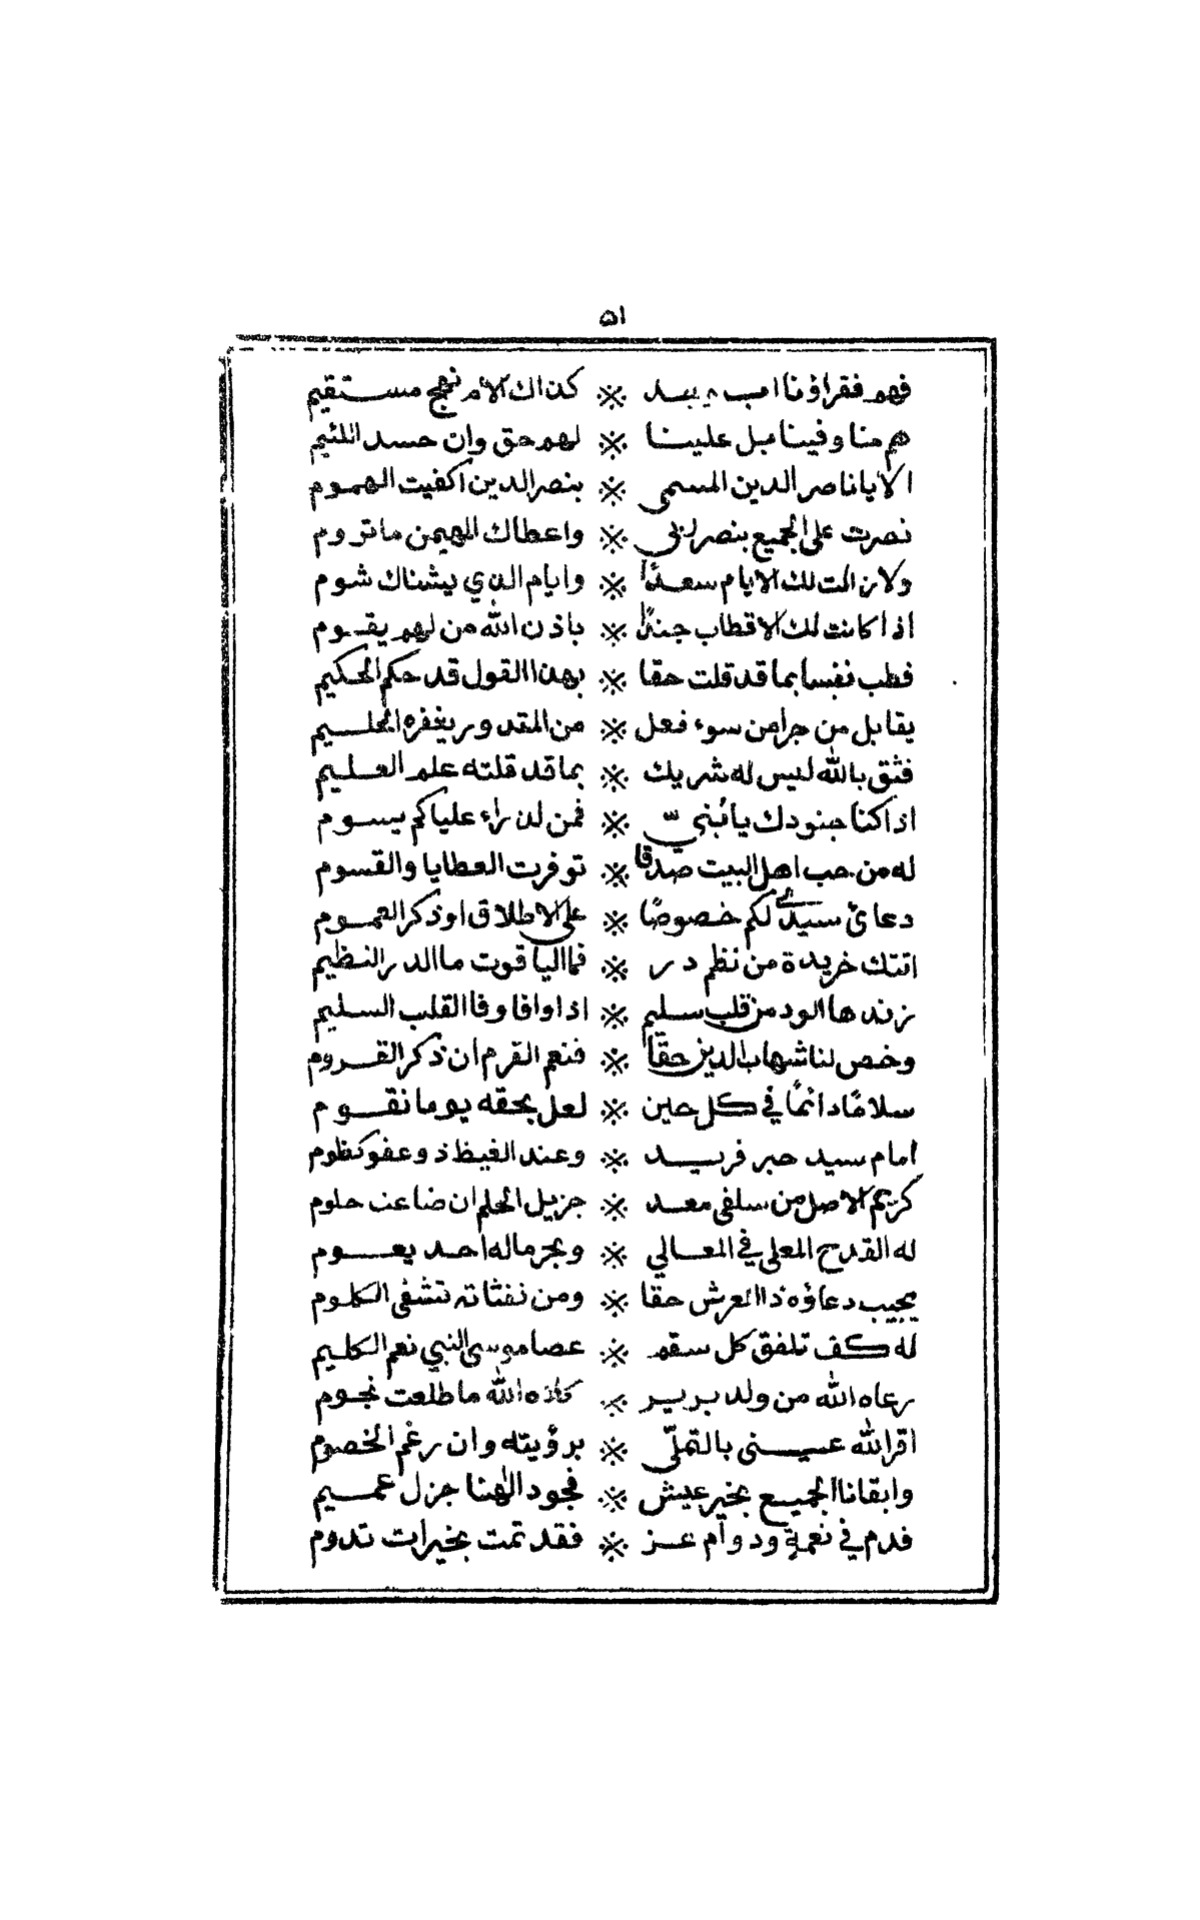 ٥١
فهم فقراؤنا اب ※ كذاك الأم نهج مستقيم
هم منا وفينا بل علينا ※ لهم حق وإن حسد اللئيم
الا يا ناصر الدين المسمى ※ بنصر الدين اكفيت الهموم
نصرت على الجميع بنصر ربي ※ واعطاك المهيمن ما تروم
ولا زالت لك الايام سعدًا ※ وايام الذي يشناك شوم
اذا كانت لك الاقطاب جندًا ※ باذن الله من لهم يقوم
فطب نفسا بما قد قلت حقا ※ بهذا القول قد حكم الحكيم
يقابل من جرا من سوء فعل ※ من المقدور يغفره الحليم
فثق بالله ليس له شريك ※ بما قد قلته علم العليم
اذا كنا جنودك يا بُنيّ ※ فمن لذراء علياكم يسوم
له من حب اهل البيت صدقا ※ توفرت العطايا والقسوم
دعائ سيدي لكم خصوصًا ※ على الاطلاق او ذكر العموم
اتتك خريدة من نظم در ※ فما الياقوت ما الدر النظيم
زندها الود من قلب سليم ※ اذا وافا وفا القلب السليم
وخص لنا شهاب الدين حقًا ※ فنعم القرم ان ذكر القروم
سلامًا دائمًا في كل حين ※ لعل بحقه يوما نقوم
امام سيد حبر فريد ※ وعند الغيظ ذو عفو كظوم
كريم الاصل من سلفي معد ※ جزيل الحلم ان ضاعت حلوم
له القدح المعلى في المعالي ※ وبحر ماله احد يعوم
يجيب دعاؤه ذا العرش حقا ※ ومن نفثاته تشفى الكلوم
له كف تلفق كل سقم ※ عصا موسى النبي نعم الكليم
رعاه الله من ولد برير ※ كلاه الله ما طلعت نجوم
اقر الله عيني بالتملّي ※ برؤيته وان رغم الخصوم
وابقانا الجميع بخير عيش ※ فجود الهنا جزل عميم
فدم في نعمة ودوام عز ※ فقد تمت بخيرات تدوم